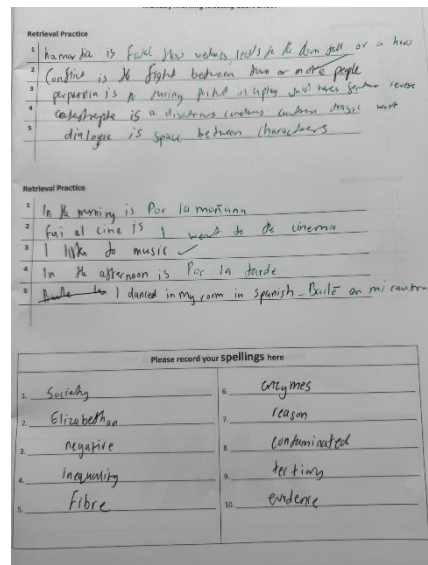 Retrieval Practice
1 hamartia is fatal flaw weakness, leads to the down fall or a hero
2 Conflict is the fight between two or more people
3 is a turning point in a play
4 catastrophe is a disastrous tragic
5 dialogue is space between characters
Retrieval Practice
1 In the morning is Por la mañana
2 fui al cine is I went to the cinema
3 I listen to music ✓
4 In the afternoon is Por la tarde
5 I danced in my room in Spanish - Bailé en mi
Please record your spellings here
1. Society 6. enzymes
2. Elizabethan 7. reason
3. negative 8. contaminated
4. inequality 9. tertiary
5. Fibre 10. evidence